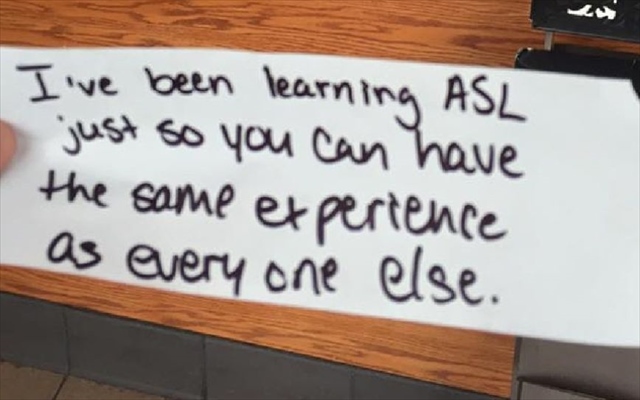 I've been learning ASL
just so you can have
the same experience
as every one else.